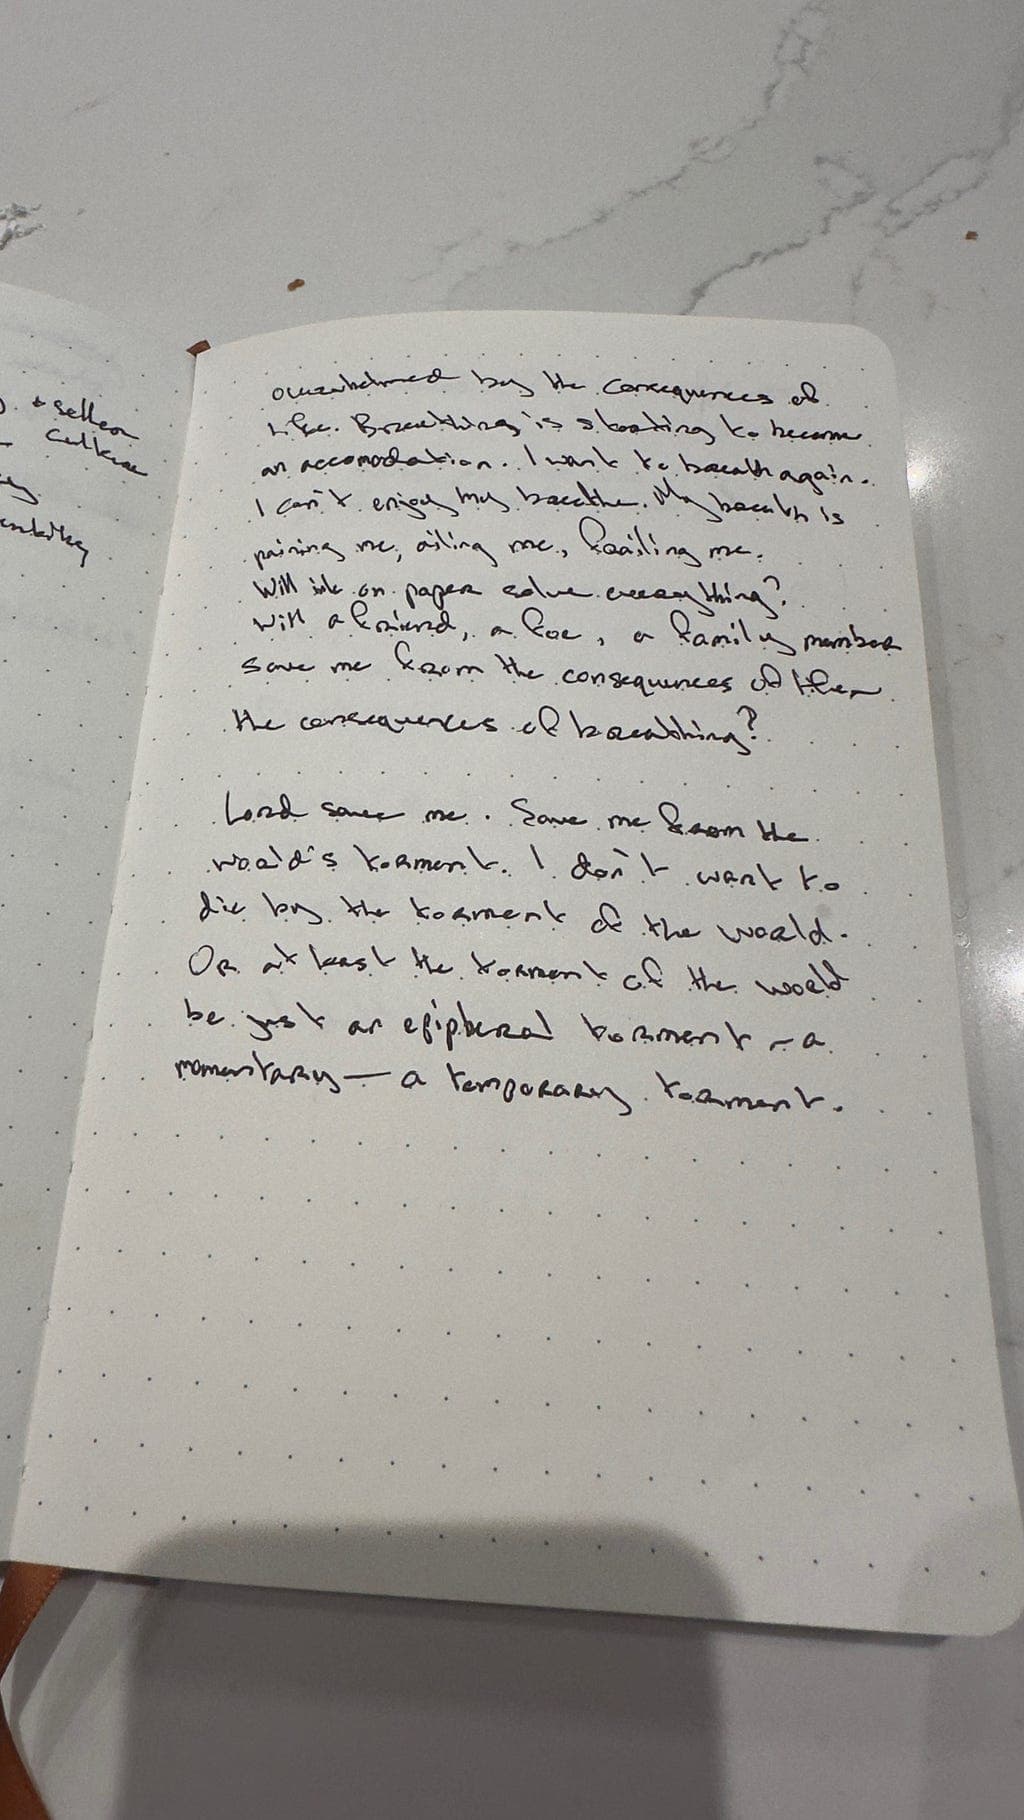 & seller
culture
overwhelmed by the consequences of
life. Breathing is starting to become
an accomodation. I want to breath again.
I can't enjoy my breathe. My breath is
paining me, ailing me, failing me.
Will ink on paper solve everything?
Will a friend, a foe, a family member
save me from the consequences of
the consequences of breathing?
Lord save me. Save me from the
world's torment. I don't want to
die by the torment of the world.
Or at least the torment of the world
be just an epipheral torment - a
momentary — a temporary torment.